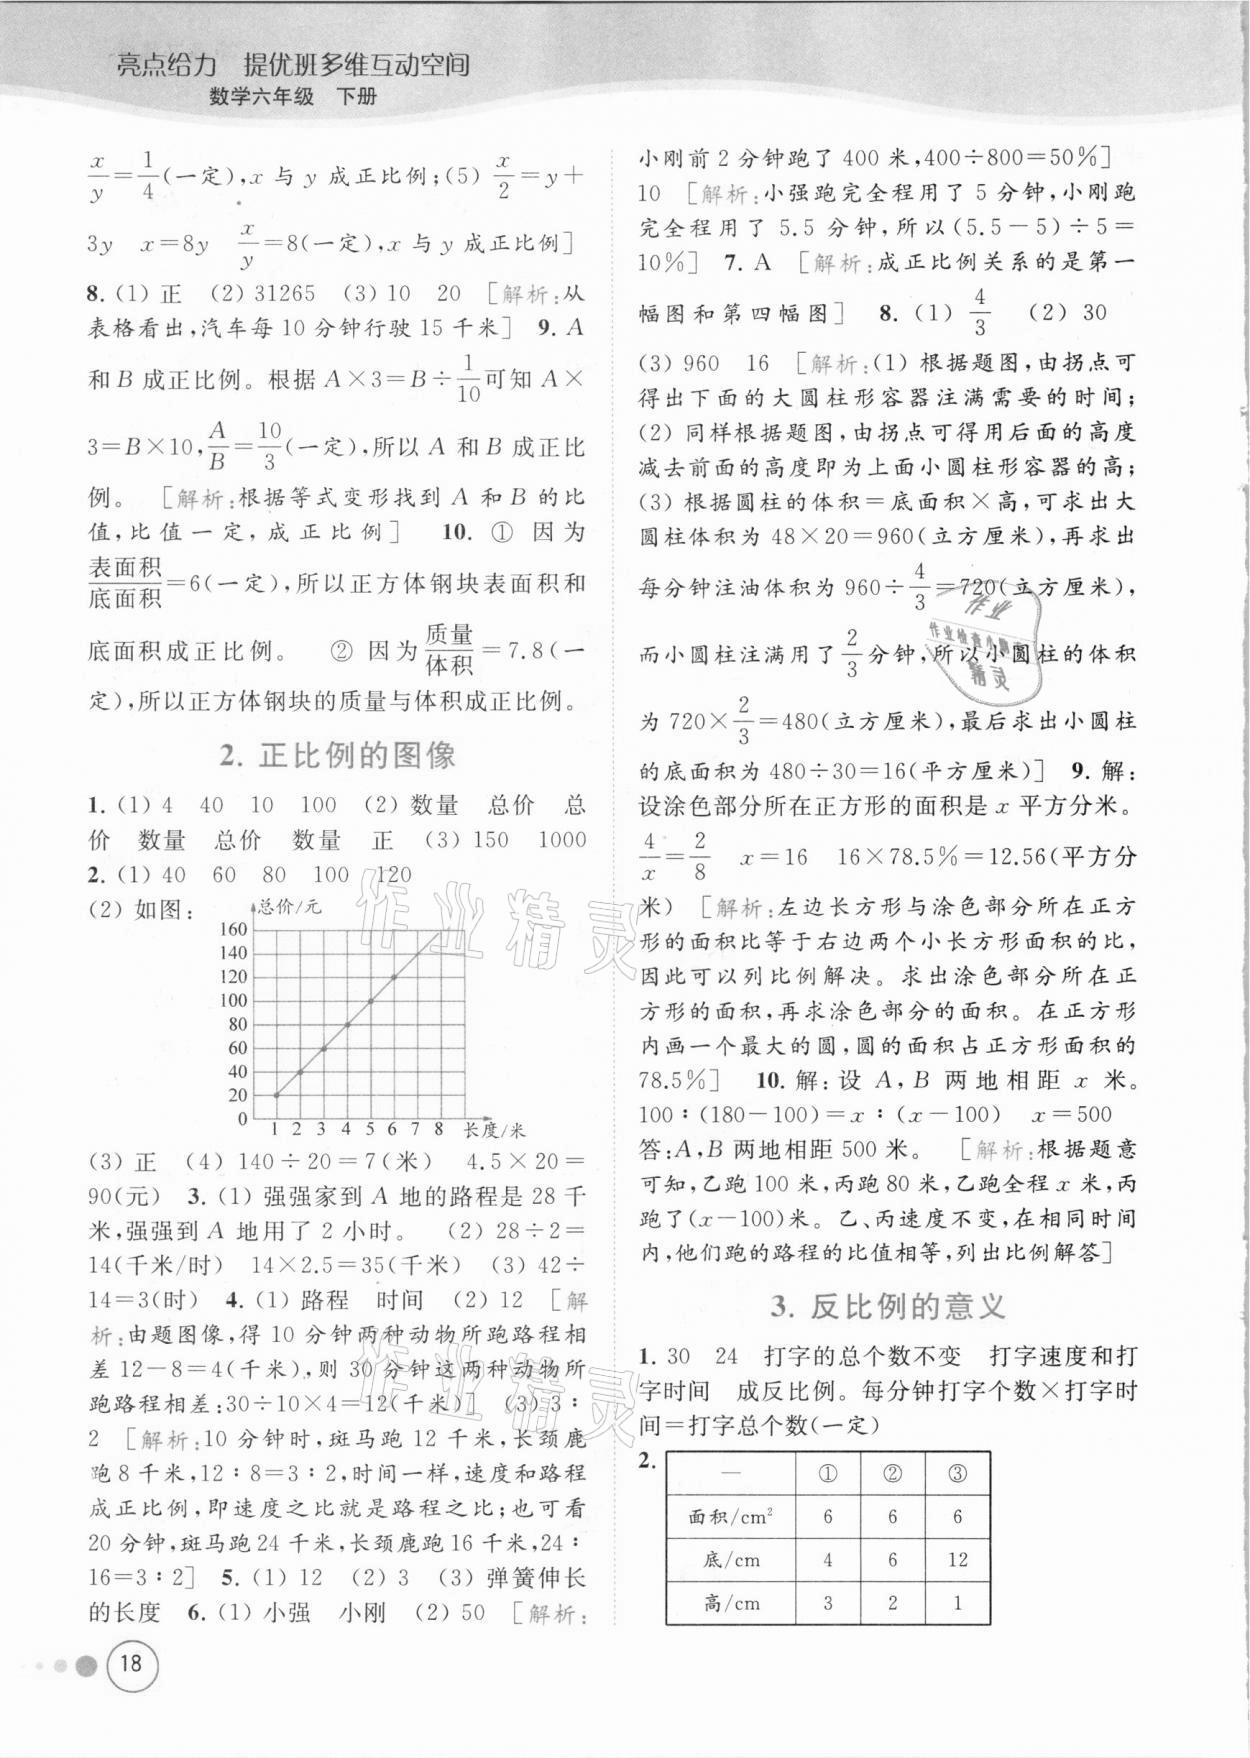 亮点给力　提优班多维互动空间
数学六年级　下册
x/y=1/4(一定),x 与 y 成正比例;(5) x/2=y+
3y　x=8y　x/y=8(一定),x 与 y 成正比例]
8. (1) 正　(2) 31265　(3) 10　20　[解析:从
表格看出,汽车每 10 分钟行驶 15 千米]　9. A
和 B 成正比例。根据 A×3=B÷1/10可知 A×
3=B×10,A/B=10/3(一定),所以 A 和 B 成正比
例。　[解析:根据等式变形找到 A 和 B 的比
值,比值一定,成正比例]　10. ① 因为
表面积/底面积=6(一定),所以正方体钢块表面积和
底面积成正比例。　② 因为质量/体积=7.8(一
定),所以正方体钢块的质量与体积成正比例。
2. 正比例的图像
1. (1) 4　40　10　100　(2) 数量　总价　总
价　数量　总价　数量　正　(3) 150　1000
2. (1) 40　60　80　100　120
(2) 如图:
总价/元
160
140
120
100
80
60
40
20
0
1 2 3 4 5 6 7 8 长度/米
(3) 正　(4) 140÷20=7(米)　4.5×20=
90(元)　3. (1) 强强家到 A 地的路程是 28 千
米,强强到 A 地用了 2 小时。　(2) 28÷2=
14(千米/时)　14×2.5=35(千米)　(3) 42÷
14=3(时)　4. (1) 路程　时间　(2) 12　[解
析:由题图像,得 10 分钟两种动物所跑路程相
差 12-8=4(千米),则 30 分钟这两种动物所
跑路程相差:30÷10×4=12(千米)]　(3) 3∶
2　[解析:10 分钟时,斑马跑 12 千米,长颈鹿
跑 8 千米,12∶8=3∶2,时间一样,速度和路程
成正比例,即速度之比就是路程之比;也可看
20 分钟,斑马跑 24 千米,长颈鹿跑 16 千米,24∶
16=3∶2]　5. (1) 12　(2) 3　(3) 弹簧伸长
的长度　6. (1) 小强　小刚　(2) 50　[解析:
18
小刚前 2 分钟跑了 400 米,400÷800=50%]
10　[解析:小强跑完全程用了 5 分钟,小刚跑
完全程用了 5.5 分钟,所以(5.5-5)÷5=
10%]　7. A　[解析:成正比例关系的是第一
幅图和第四幅图]　8. (1) 4/3　(2) 30
(3) 960　16　[解析:(1) 根据题图,由拐点可
得出下面的大圆柱形容器注满需要的时间;
(2) 同样根据题图,由拐点可得用后面的高度
减去前面的高度即为上面小圆柱形容器的高;
(3) 根据圆柱的体积=底面积×高,可求出大
圆柱体积为 48×20=960(立方厘米),再求出
每分钟注油体积为 960÷4/3=720(立方厘米),
而小圆柱注满用了2/3分钟,所以小圆柱的体积
为 720×2/3=480(立方厘米),最后求出小圆柱
的底面积为 480÷30=16(平方厘米)]　9. 解:
设涂色部分所在正方形的面积是 x 平方分米。
4/x=2/8　x=16　16×78.5%=12.56(平方分
米)　[解析:左边长方形与涂色部分所在正方
形的面积比等于右边两个小长方形面积的比,
因此可以列比例解决。求出涂色部分所在正
方形的面积,再求涂色部分的面积。在正方形
内画一个最大的圆,圆的面积占正方形面积的
78.5%]　10. 解:设 A,B 两地相距 x 米。
100∶(180-100)=x∶(x-100)　x=500
答:A,B 两地相距 500 米。　[解析:根据题意
可知,乙跑 100 米,丙跑 80 米,乙跑全程 x 米,丙
跑了(x-100)米。乙、丙速度不变,在相同时间
内,他们跑的路程的比值相等,列出比例解答]
3. 反比例的意义
1. 30　24　打字的总个数不变　打字速度和打
字时间　成反比例。每分钟打字个数×打字时
间=打字总个数(一定)
2.
—　①　②　③
面积/cm²　6　6　6
底/cm　4　6　12
高/cm　3　2　1
作业
作业检查小助手
精灵
作业精灵
作业精灵